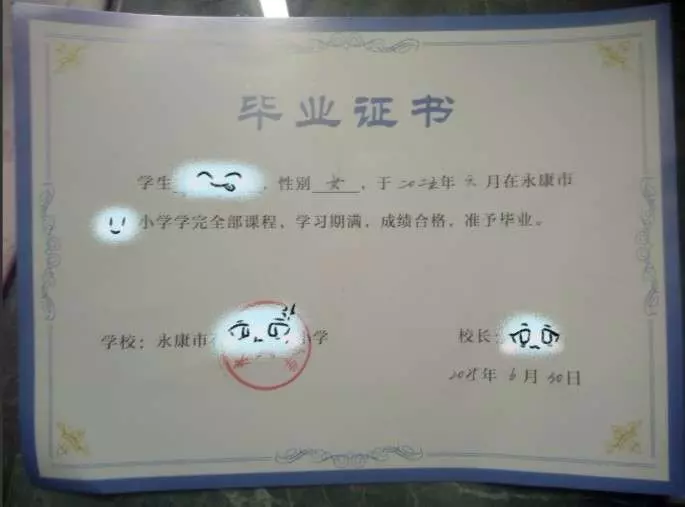 毕业证书
学生 ,性别 女 ,于 2025年 六 月在永康市
小学学完全部课程,学习期满,成绩合格,准予毕业。
学校:永康市 小学 校长:
2025年 6 月 30日